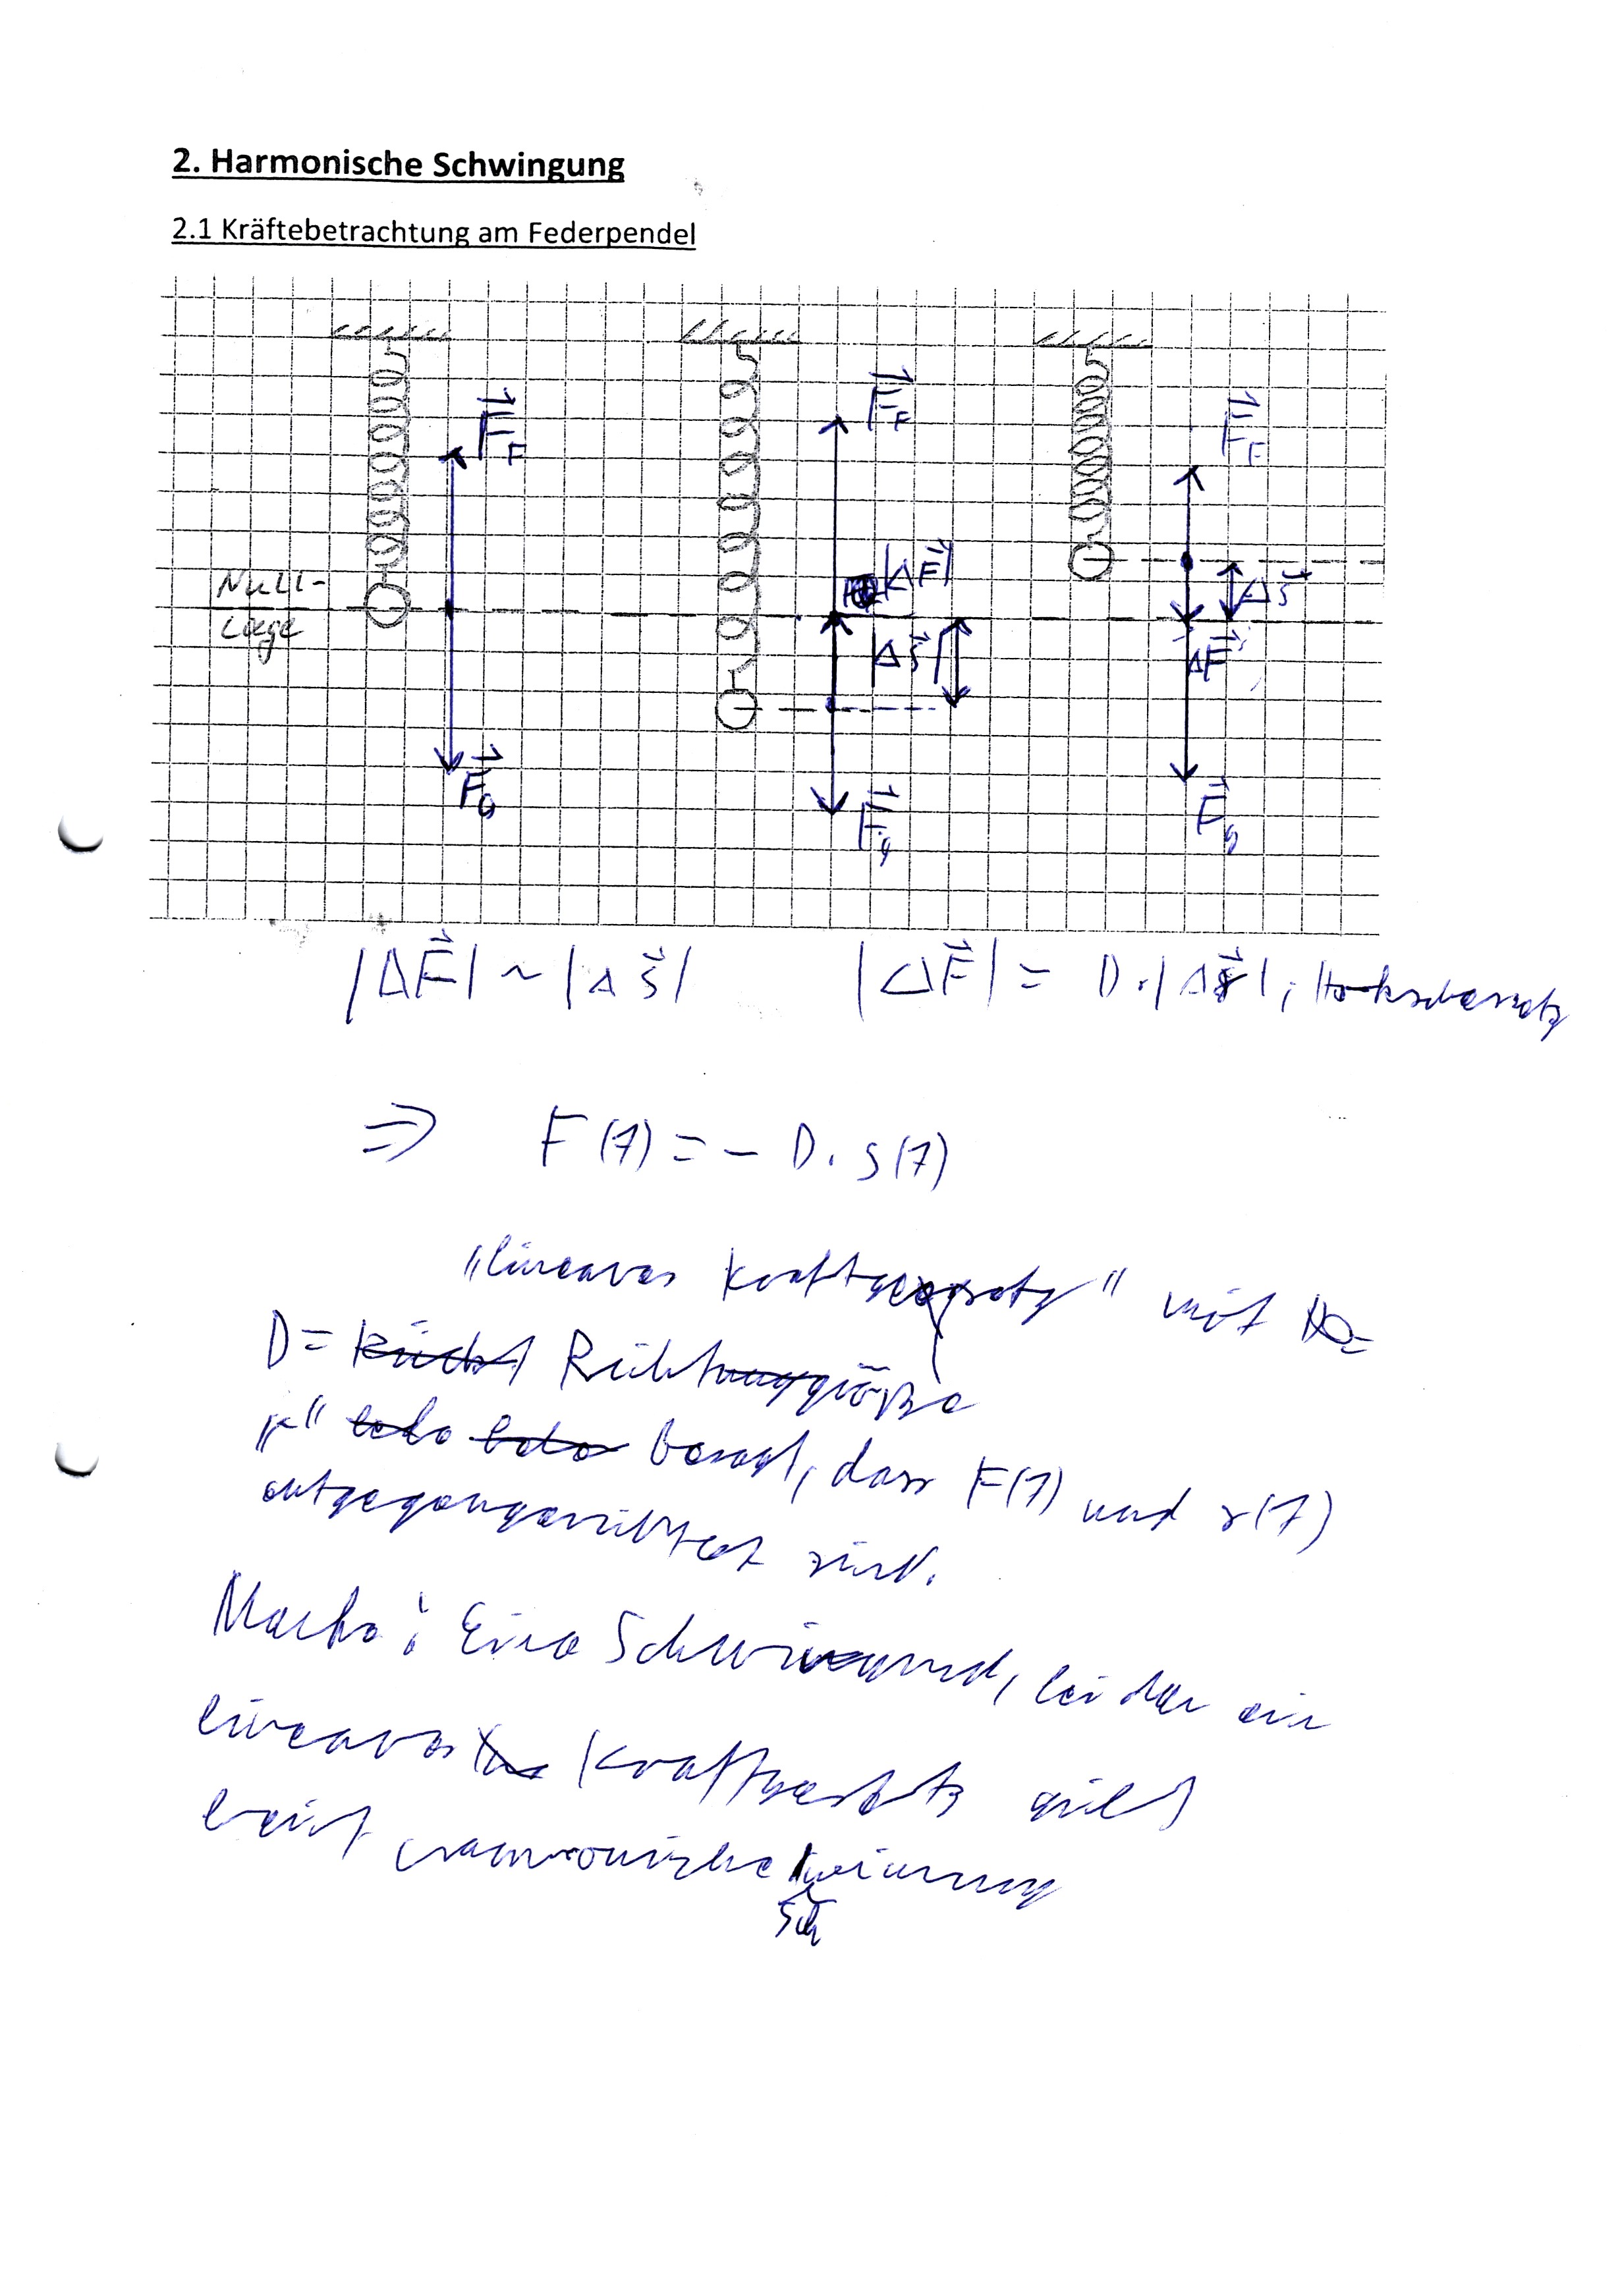 2. Harmonische Schwingung
2.1 Kräftebetrachtung am Federpendel
F_F
F_F
F_F
|ΔF|
Null-
lage
Δs
|Δs|
ΔF
F_G
F_g
F_g
|ΔF| ~ |Δs| |ΔF| = D·|Δs|;
⇒ F(t) = - D · s(t)
"lineares Kraftgesetz" mit
D = Richtgröße
"-" besagt, dass F(t) und s(t)
entgegengerichtet sind.
Merke: Eine Schwingung, bei der ein
lineares Kraftgesetz gilt
heißt harmonische Schwingung